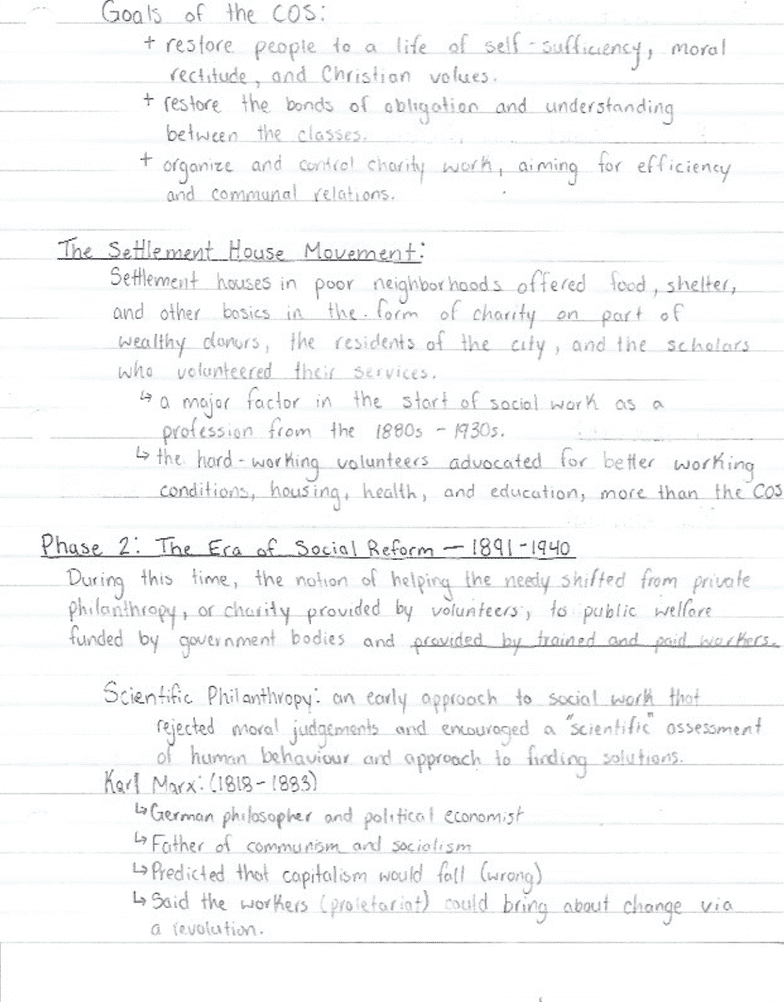 Goals of the COS:
+ restore people to a life of self-sufficiency, moral
rectitude, and Christian values.
+ restore the bonds of obligation and understanding
between the classes.
+ organize and control charity work, aiming for efficiency
and communal relations.
The Settlement House Movement:
Settlement houses in poor neighborhoods offered food, shelter,
and other basics in the form of charity on part of
wealthy donors, the residents of the city, and the scholars
who volunteered their services.
↳ a major factor in the start of social work as a
profession from the 1880s - 1930s.
↳ the hard-working volunteers advocated for better working
conditions, housing, health, and education, more than the COS
Phase 2: The Era of Social Reform — 1891-1940
During this time, the notion of helping the needy shifted from private
philanthropy, or charity provided by volunteers, to public welfare
funded by government bodies and provided by trained and paid workers.
Scientific Philanthropy: an early approach to social work that
rejected moral judgements and encouraged a "scientific" assessment
of human behaviour and approach to finding solutions.
Karl Marx: (1818-1883)
↳ German philosopher and political economist
↳ Father of communism and socialism
↳ Predicted that capitalism would fall (wrong)
↳ Said the workers (proletariat) could bring about change via
a revolution.